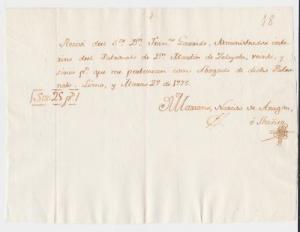 48
Recivi del S.or D.n Fern.do Garrido, Administrador
del Patronato de D.n Martin de Zelayeta, veinte, y
cinco p.s que me pertenecen como Abogado de dicho Patro-
nato. Lima, y Marzo 2 de 177
Son 25 p.s
Mariano Narciso de Aragon